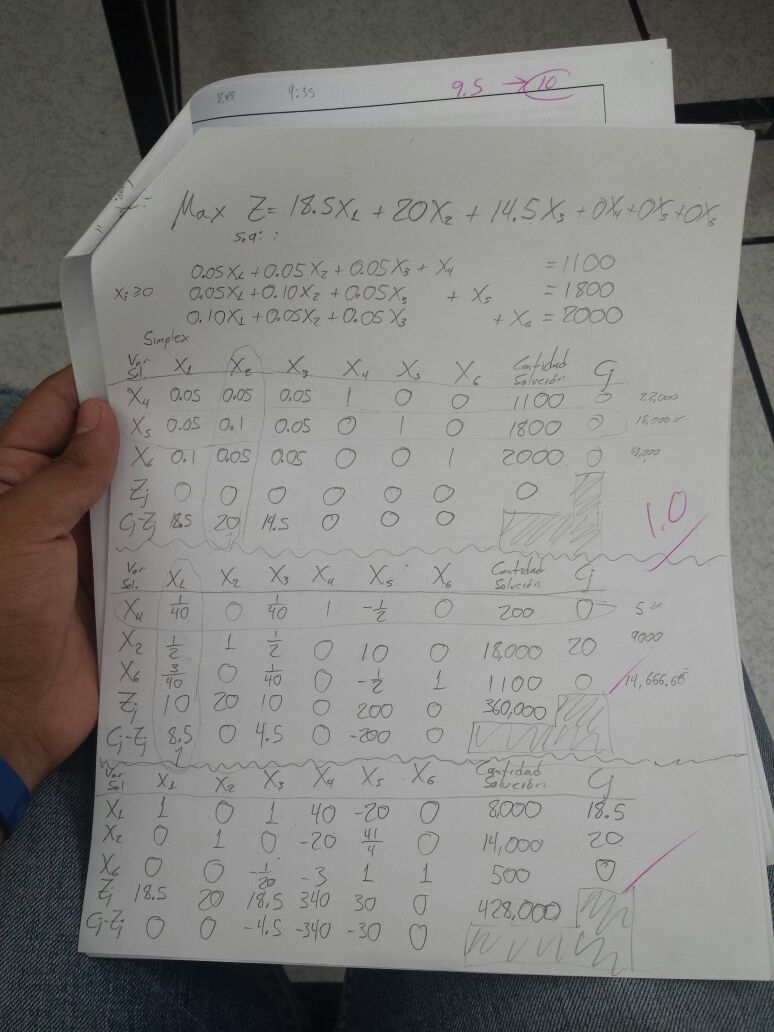 8:45 9:35 9.5 → 10
Max Z = 18.5X1 + 20X2 + 14.5X3 + 0X4 + 0X5 + 0X6
s.a. :
0.05X1 + 0.05X2 + 0.05X3 + X4 = 1100
Xj ≥ 0 0.05X1 + 0.10X2 + 0.05X3 + X5 = 1800
0.10X1 + 0.05X2 + 0.05X3 + X6 = 2000
Simplex
Var Sol. X1 X2 X3 X4 X5 X6 Cantidad Solución Cj
X4 0.05 0.05 0.05 1 0 0 1100 0 22,000
X5 0.05 0.1 0.05 0 1 0 1800 0 18,000
X6 0.1 0.05 0.05 0 0 1 2000 0 40,000
Zj 0 0 0 0 0 0 0
Cj-Zj 18.5 20 14.5 0 0 0
1.0
Var Sol. X1 X2 X3 X4 X5 X6 Cantidad Solución Cj
X4 1/40 0 1/40 1 -1/2 0 200 0
X2 1/2 1 1/2 0 10 0 18,000 20 9000
X6 3/40 0 1/40 0 -1/2 1 1100 0 14,666.66
Zj 10 20 10 0 200 0 360,000
Cj-Zj 8.5 0 4.5 0 -200 0
Var Sol X1 X2 X3 X4 X5 X6 Cantidad Solución Cj
X1 1 0 1 40 -20 0 8,000 18.5
X2 0 1 0 -20 41/4 0 14,000 20
X6 0 0 -1/20 -3 1 1 500 0
Zj 18.5 20 18.5 340 30 0 428,000
Cj-Zj 0 0 -4.5 -340 -30 0